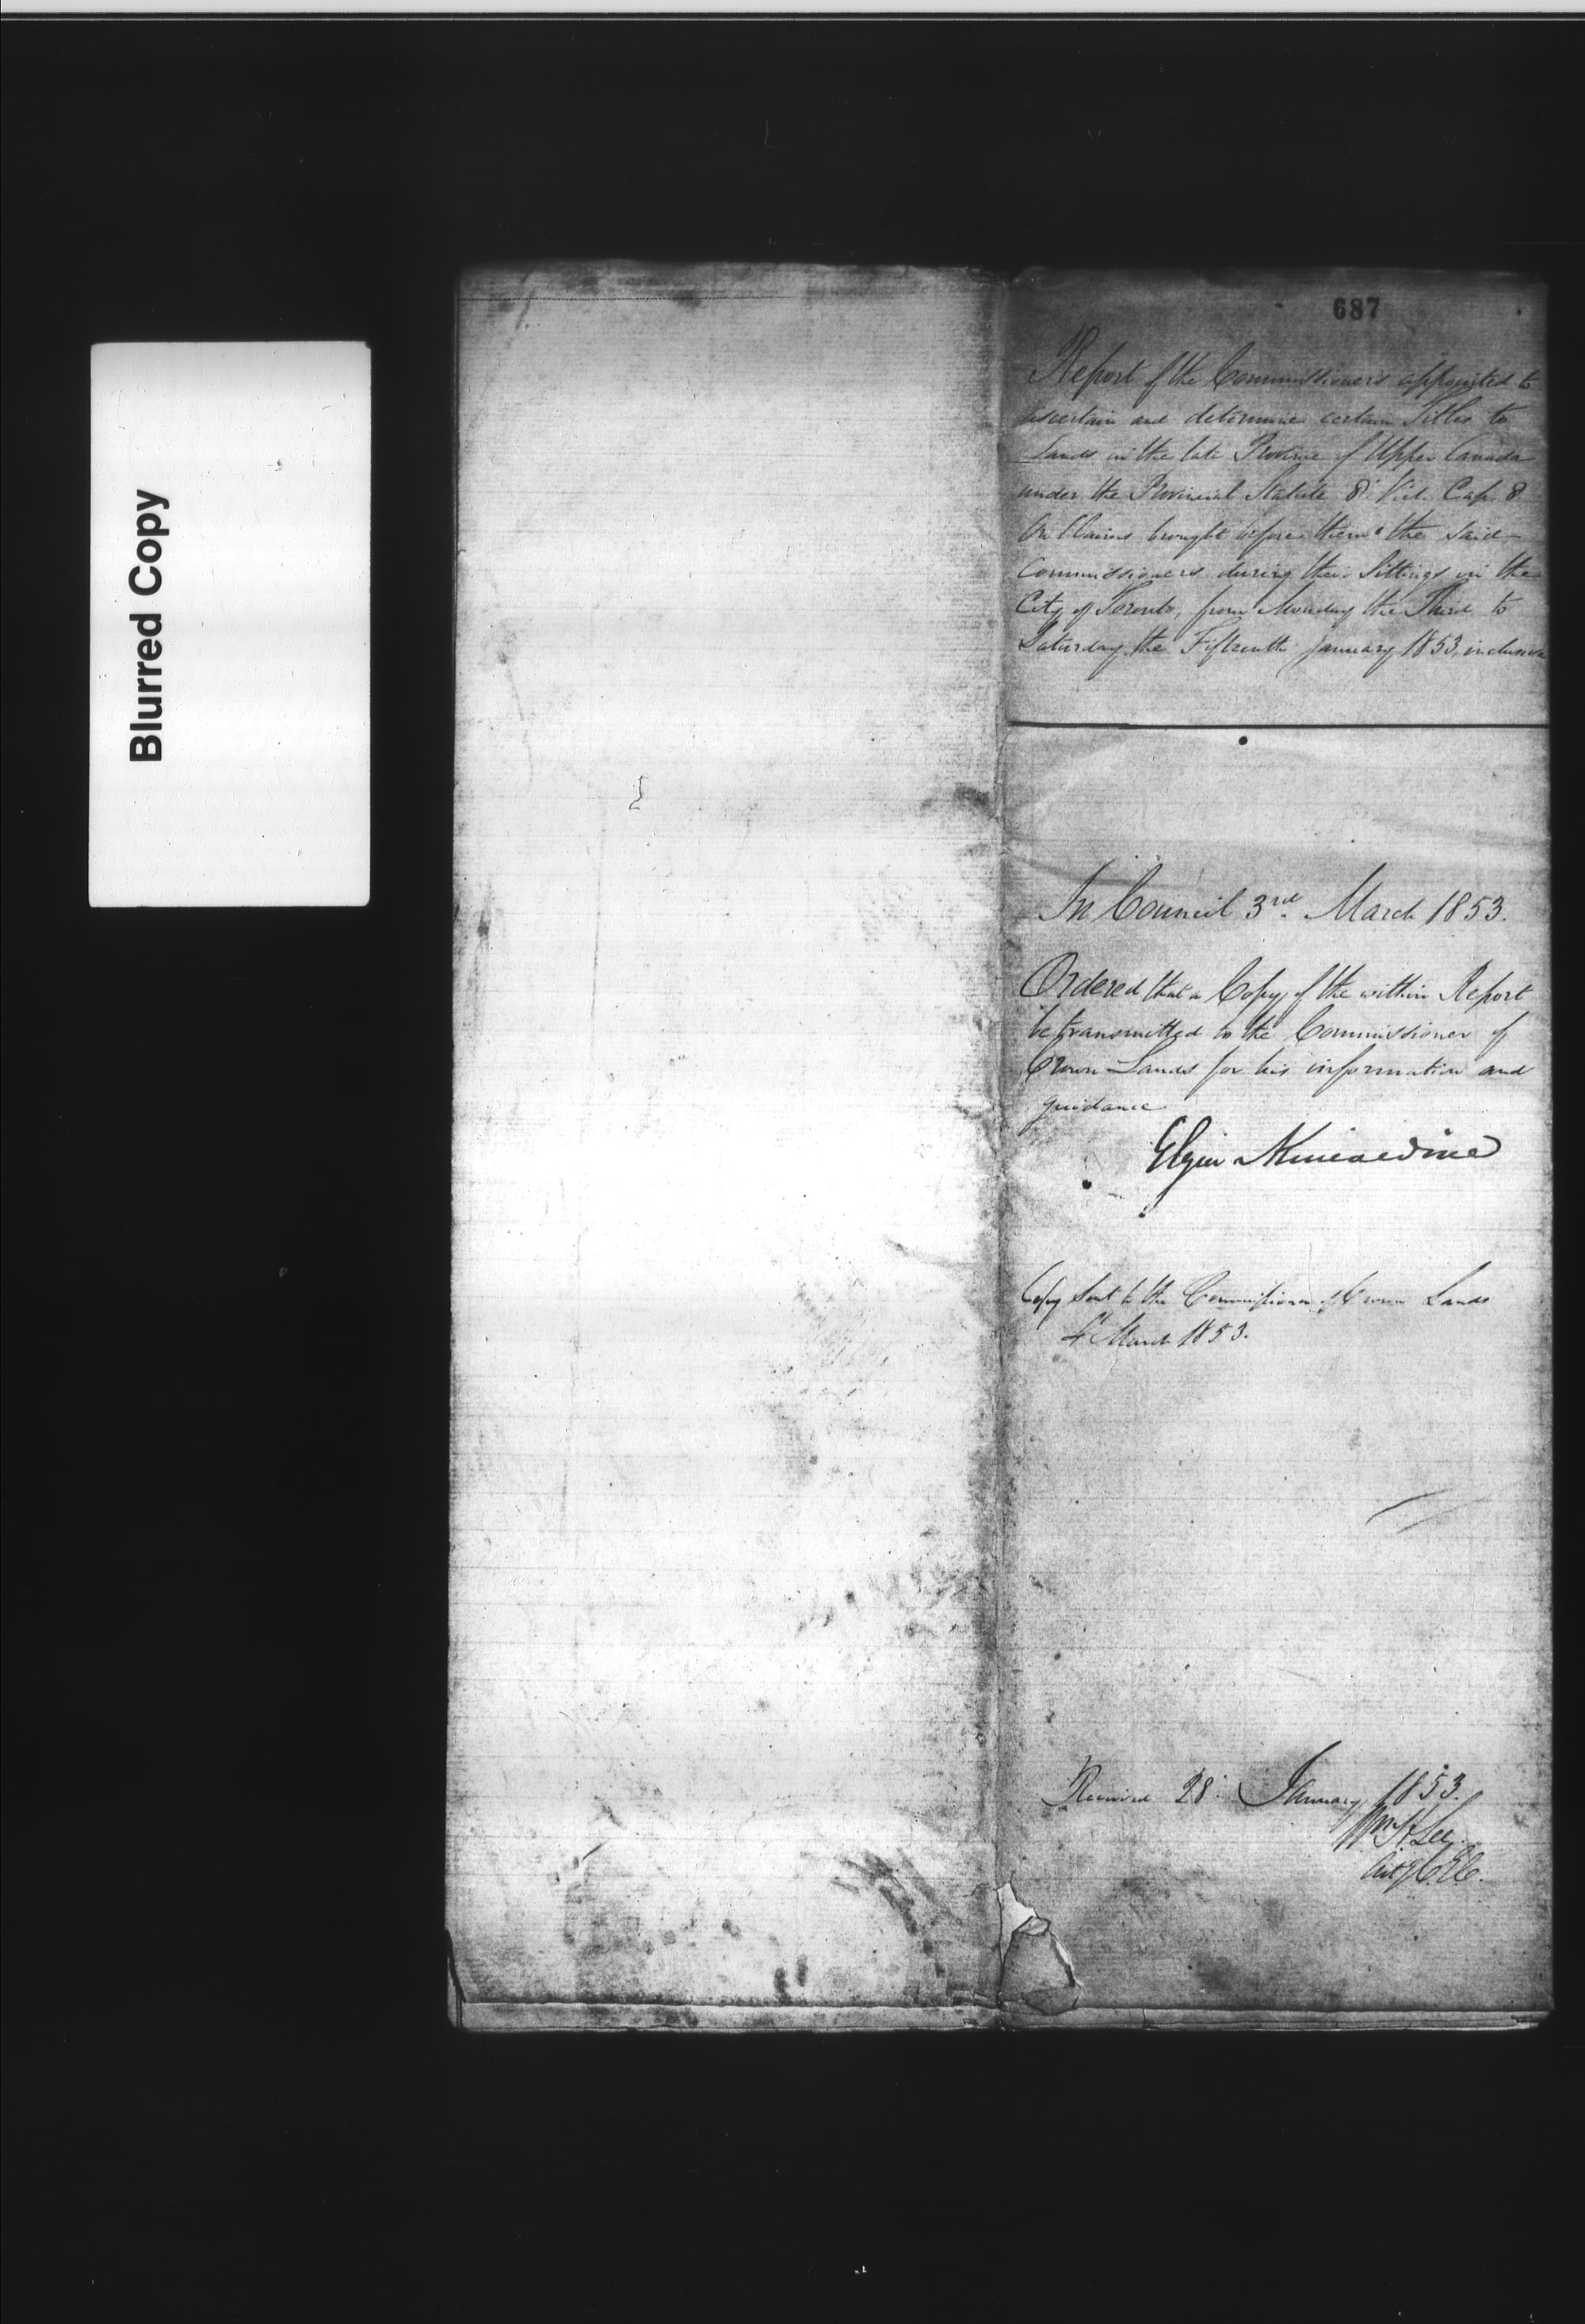 Blurred Copy
687
Report of the Commissioners appointed to
ascertain and determine certain Titles to
Lands in the late Province of Upper Canada
under the Provincial Statute 8: Vict. Cap. 8
On Claims brought before them the said
Commissioners during their Sittings in the
City of Toronto, from Monday the Third to
Saturday the Fifteenth January 1853, inclusive
In Council 3rd. March 1853.
Ordered that a Copy of the within Report
be transmitted to the Commissioner of
Crown Lands for his information and
guidance
Elgin & Kincardine
Copy sent to the Commissioner of Crown Lands
4 March 1853.
Received 28: January 1853.
Wm H Lee
C.E.C.